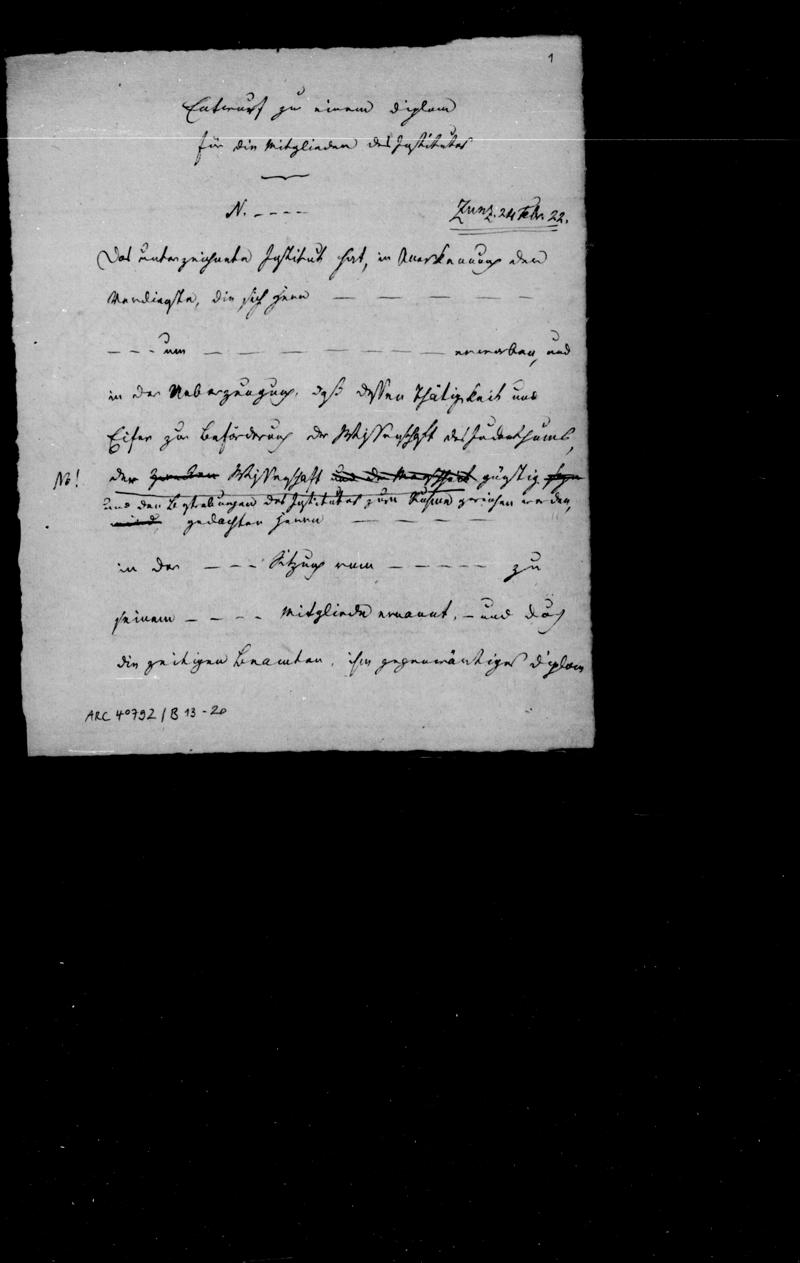 1
Entwurf zu einem Diplom
für die Mitglieder des Institutes
N. - - - -
Zunz. 24 Febr. 22.
Das unterzeichnete Institut hat, in Anerkennung der
Verdienste, die sich Herr — — — — —
- - - um — — — — — — erworben, und
in der Ueberzeugung, daß dessen Thätigkeit und
Eifer zur Beförderung der Wissenschaft des Judenthums,
NB! der Wissenschaft und der Menschheit günstig seyn
und den Bestrebungen des Institutes zum Ruhme gereichen werden,
wird gedachten Herrn — — — — —
in der - - - Sitzung vom - - - - - zu
seinem - - - - Mitgliede ernannt, - und durch
die zeitigen Beamten, ihm gegenwärtiges Diplom
ARC 4° 792 / B 13 - 20